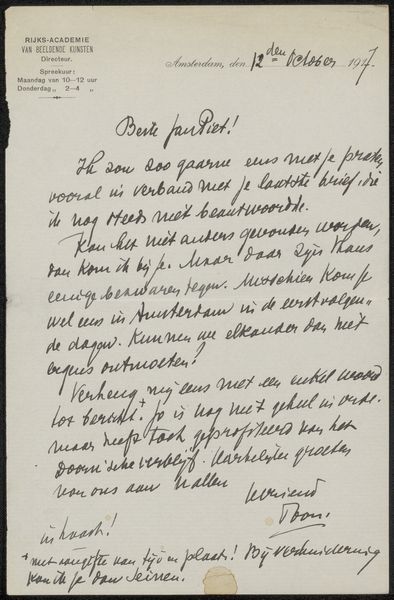 RIJKS-ACADEMIE
VAN BEELDENDE KUNSTEN
Directeur.
Spreekuur:
Maandag van 10—12 uur
Donderdag „ 2—4 „
Amsterdam, den 12den October 1917
Beste Jan Piet!
Ik zou zoo gaarne eens met je praten
vooral in verband met je laatste brief, die
ik nog steeds niet beantwoordde.
Kan het niet anders gevonden worden,
dan kom ik bij je. Maar daar zijn thans
eenige bezwaren tegen. Misschien kom je
wel eens in Amsterdam in de eerstvolgen-
de dagen. Kunnen we elkander dan niet
ergens ontmoeten?
Verheug mij eens met een enkel woord
tot bericht. + Jo is nog niet geheel in orde.
maar heeft toch geprofiteerd van het
Doorn'sche verblijf. Hartelijke groeten
van ons aan U allen
Vriend
Toon.
in haast!
+ met aangifte van tijd en plaats! Bij verhindering
kan ik je dan seinen.